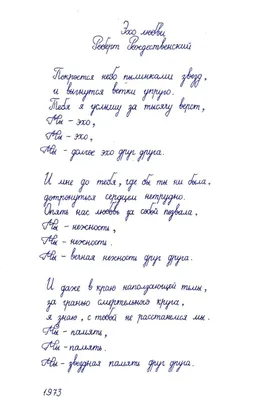 Эхо любви
Роберт Рождественский
Покроется небо пылинками звезд,
и выгнутся ветки упруго.
Тебя я услышу за тысячу верст,
Мы - эхо,
Мы - эхо,
Мы - долгое эхо друг друга.
И мне до тебя, где бы ты ни была,
дотронуться сердцем нетрудно.
Опять нас любовь за собой позвала,
Мы - нежность,
Мы - нежность.
Мы - вечная нежность друг друга.
И даже в краю наползающей тьмы,
за гранью смертельного круга,
я знаю, с тобой не расстанемся мы.
Мы - память,
Мы - память.
Мы - звездная память друг друга.
1973